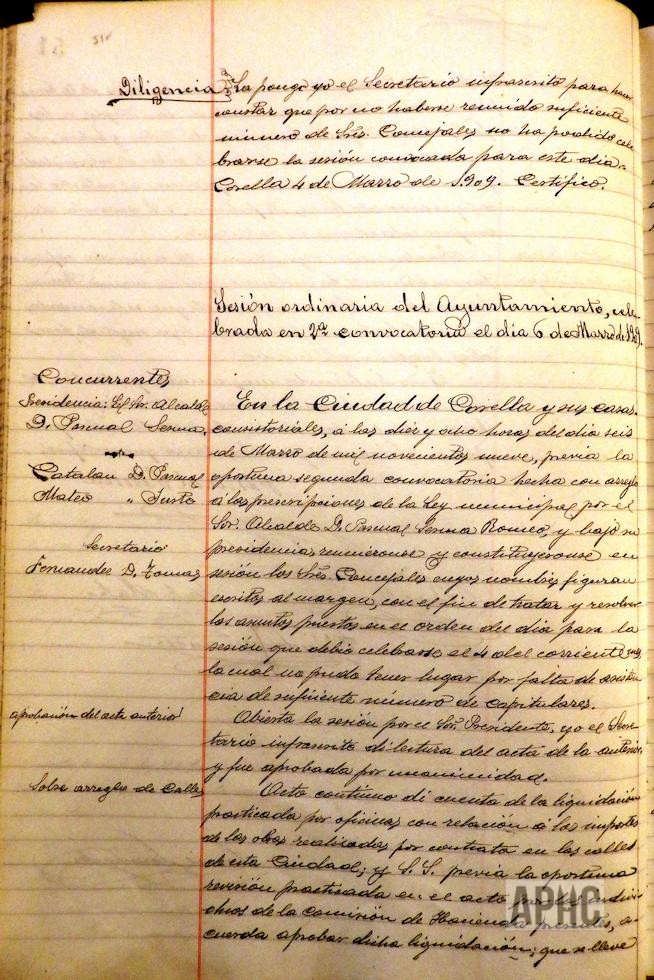 51v
Diligencia La pongo yo el Secretario infrascrito para hacer
constar que por no haberse reunido suficiente
número de Sres. Concejales no ha podido cele
brarse la sesión convocada para este dia.
Corella 4 de Marzo de 1.909. Certifico.
Sesión ordinaria del Ayuntamiento, cele-
brada en 2ª convocatoria el dia 6 de Marzo de 1909.
Concurrentes
Presidencia: El Sr. Alcalde
D. Pascual Senna.
Catalan D. Pascual
Mateo " Justo
Secretario
Fernandez D. Tomas
En la Ciudad de Corella y sus casas
consistoriales, á las diez y ocho horas del dia seis
de Marzo de mil novecientos nueve, previa la
oportuna segunda convocatoria hecha con arreglo
á las prescripciones de la Ley municipal por el
Sor. Alcalde D. Pascual Senna Romeo, y bajo su
presidencia, reunieronse y constituyeronse en
sesión los Sres. Concejales cuyos nombres figuran
escritos al margen, con el fin de tratar y resolver
los asuntos puestos en el orden del dia para la
sesión que debio celebarse el 4 del corriente mes
la cual no pudo tener lugar por falta de asisten
cia de suficiente número de capitulares.
aprobación del acta anterior
Abierta la sesión por el Sor. Presidente, yo el Secre-
tario infrascrito di lectura del acta de la anterior,
y fue aprobada por unanimidad.
Sobre arreglo de Calles
Acto continuo di cuenta de la liquidación
practicada por oficinas con relación á los importes
de las obras realizadas por contrata en las calles
de esta Ciudad; y S. S. previa la oportuna
revisión practicada en el acto por los indivi
duos de la comisión de Hacienda presentes, a-
cuerda aprobar dicha liquidación; que se lleve
APHC